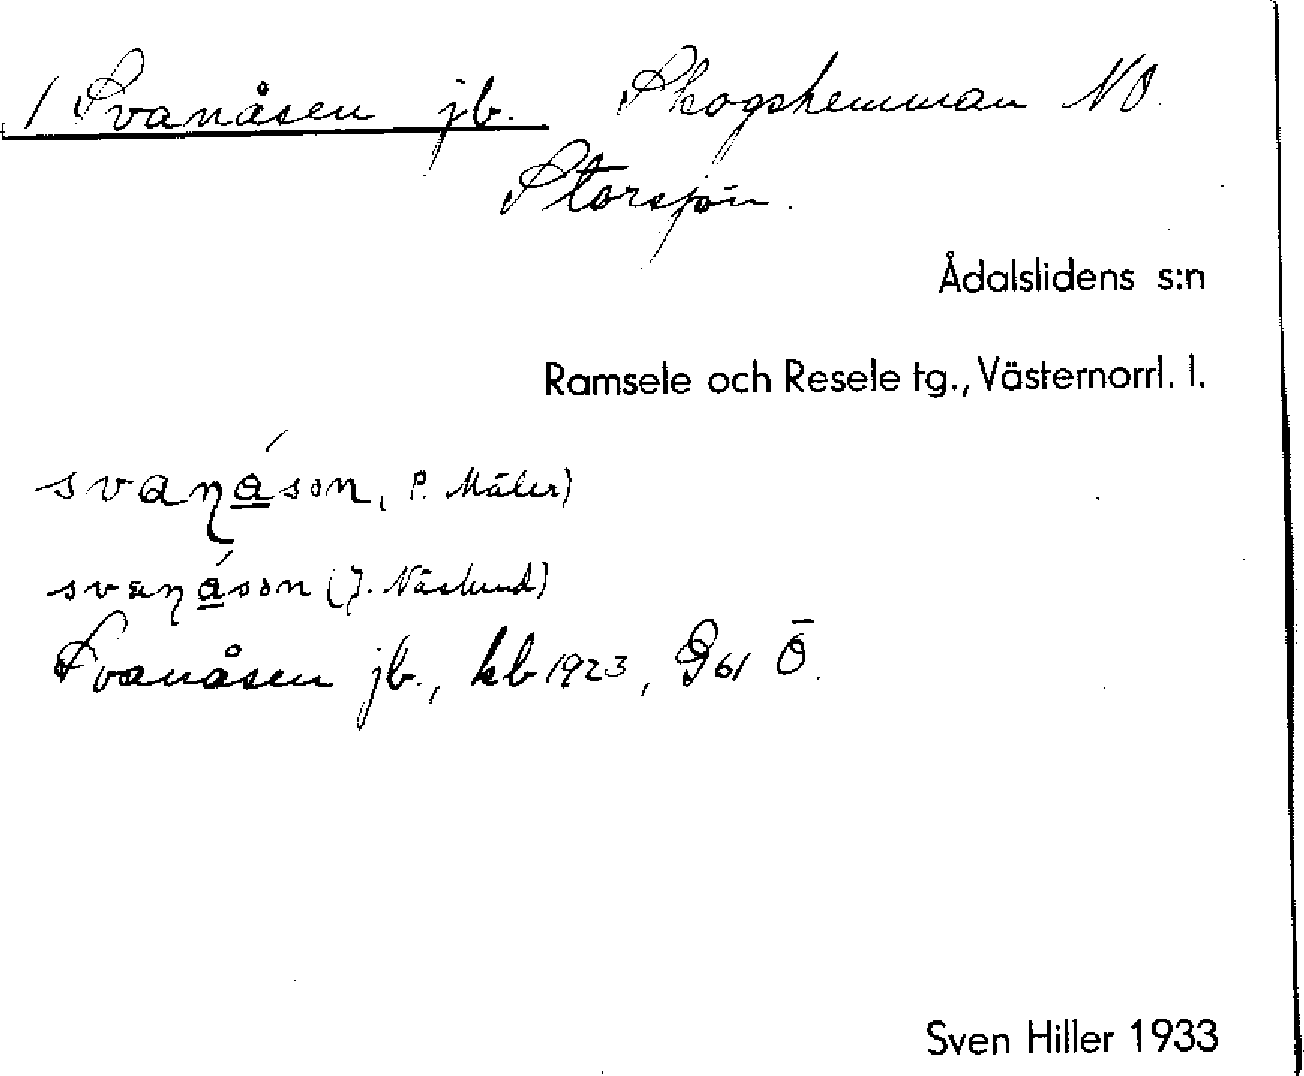 1 Svanåsen jb. Skogshemman NO
Storsjön.
Ådalslidens s:n
Ramsele och Resele tg., Västernorrl. l.
svaɳá̲son, P. Mäler)
svaɳá̲son (J. Näslund)
Svanåsen jb., kb 1923, G61 Ö.
Sven Hiller 1933